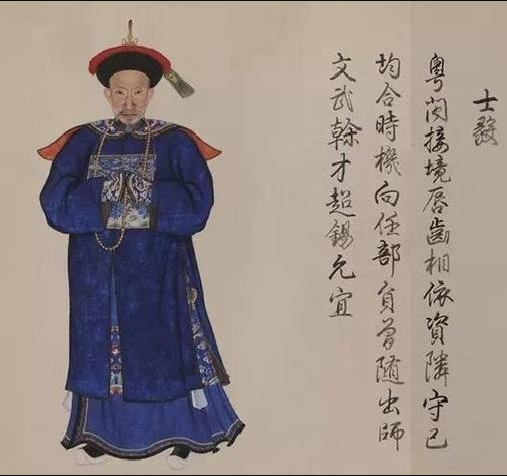 士毅
粤閩接境唇齒相依資隣守己
均合時機向任部員曾随出師
文武幹才超錫允宜